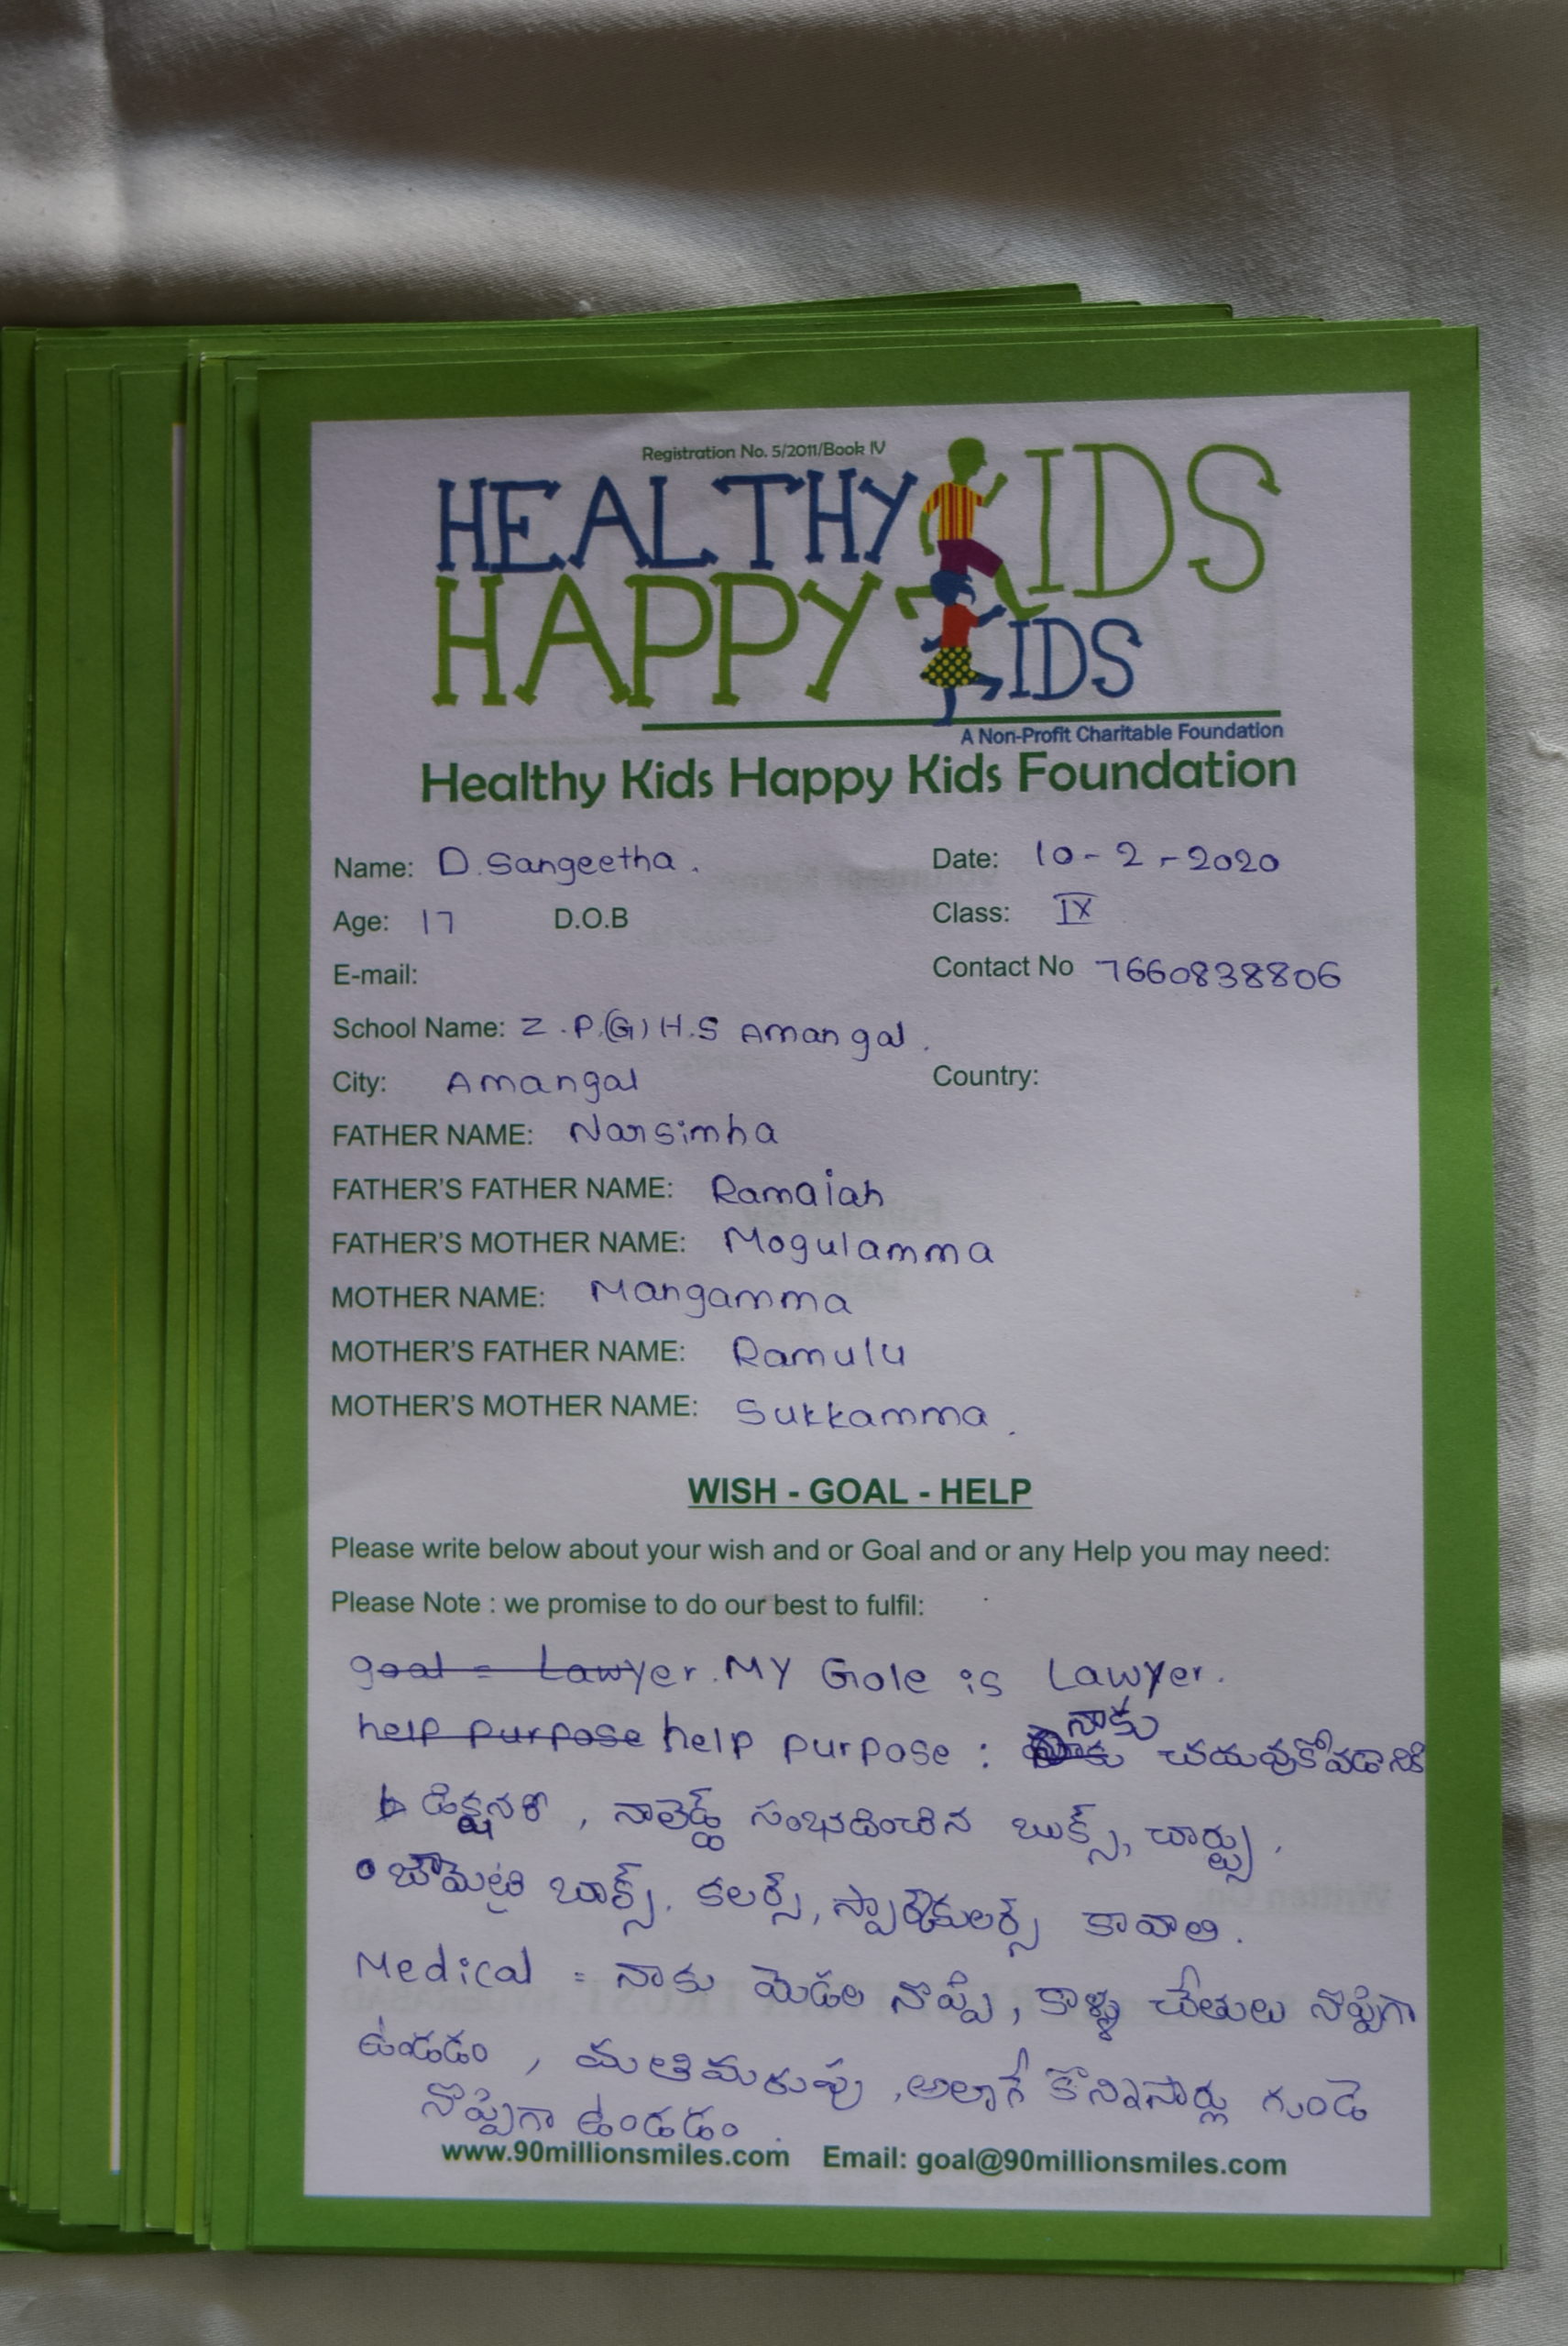 Registration No. 5/2011/Book IV
HEALTHY KIDS
HAPPY KIDS
A Non-Profit Charitable Foundation
Healthy Kids Happy Kids Foundation
Name: D. Sangeetha. Date: 10-2-2020
Age: 17 D.O.B Class: IX
E-mail: Contact No 7660838806
School Name: Z.P.(G)H.S Amangal.
City: Amangal Country:
FATHER NAME: Narsimha
FATHER'S FATHER NAME: Ramaiah
FATHER'S MOTHER NAME: Mogulamma
MOTHER NAME: Mangamma
MOTHER'S FATHER NAME: Ramulu
MOTHER'S MOTHER NAME: Sukkamma.
WISH - GOAL - HELP
Please write below about your wish and or Goal and or any Help you may need:
Please Note : we promise to do our best to fulfil:
goal = Lawyer. MY Gole is Lawyer.
help purpose help purpose : నాకు చయవుకోవడానికి
డిక్షనరీ, నాలెడ్జ్ సంభదించిన బుక్స్, చార్ట్సు.
జామెట్రి బాక్స్, కలర్స్, స్పార్కులర్స్ కావాలి.
Medical = నాకు మెడల నొప్పి, కాళ్ళు చేతులు నొప్పిగా
ఉండడం, మతిమరుపు, అలాగే కొన్నిసార్లు గుండె
నొప్పిగా ఉండడం.
www.90millionsmiles.com Email: goal@90millionsmiles.com